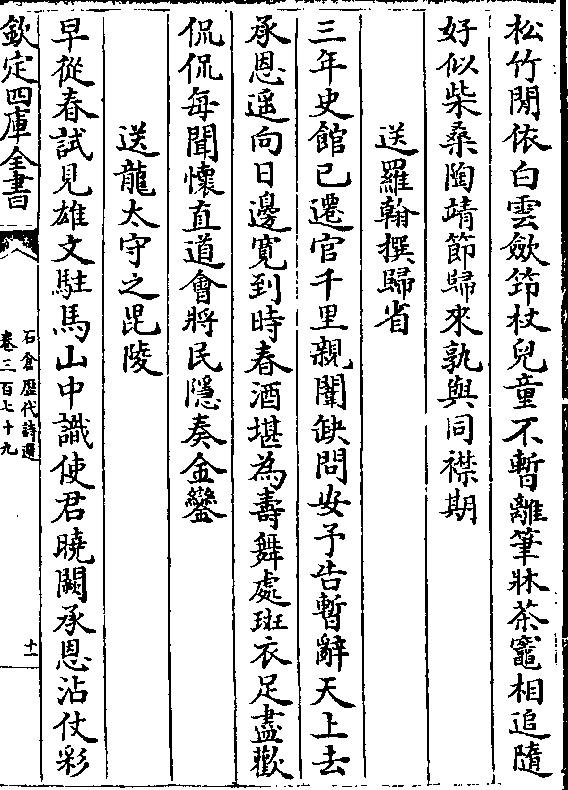 松竹閒依白雲歛筇杖兒童不暫離筆牀茶竈相追隨
好似柴桑陶靖節歸來孰與同襟期
送羅翰撰歸省
三年史館已遷官千里親闈缺問安予告暫辭天上去
承恩遥向日邊寛到時春酒堪為壽舞處斑衣足盡歡
侃侃每聞懷直道會將民隱奏金鑾
送龍太守之毘陵
早從春試見雄文駐馬山中識使君曉闕承恩沾仗彩
欽定四庫全書
石倉歴代詩選
卷三百七十九
十一